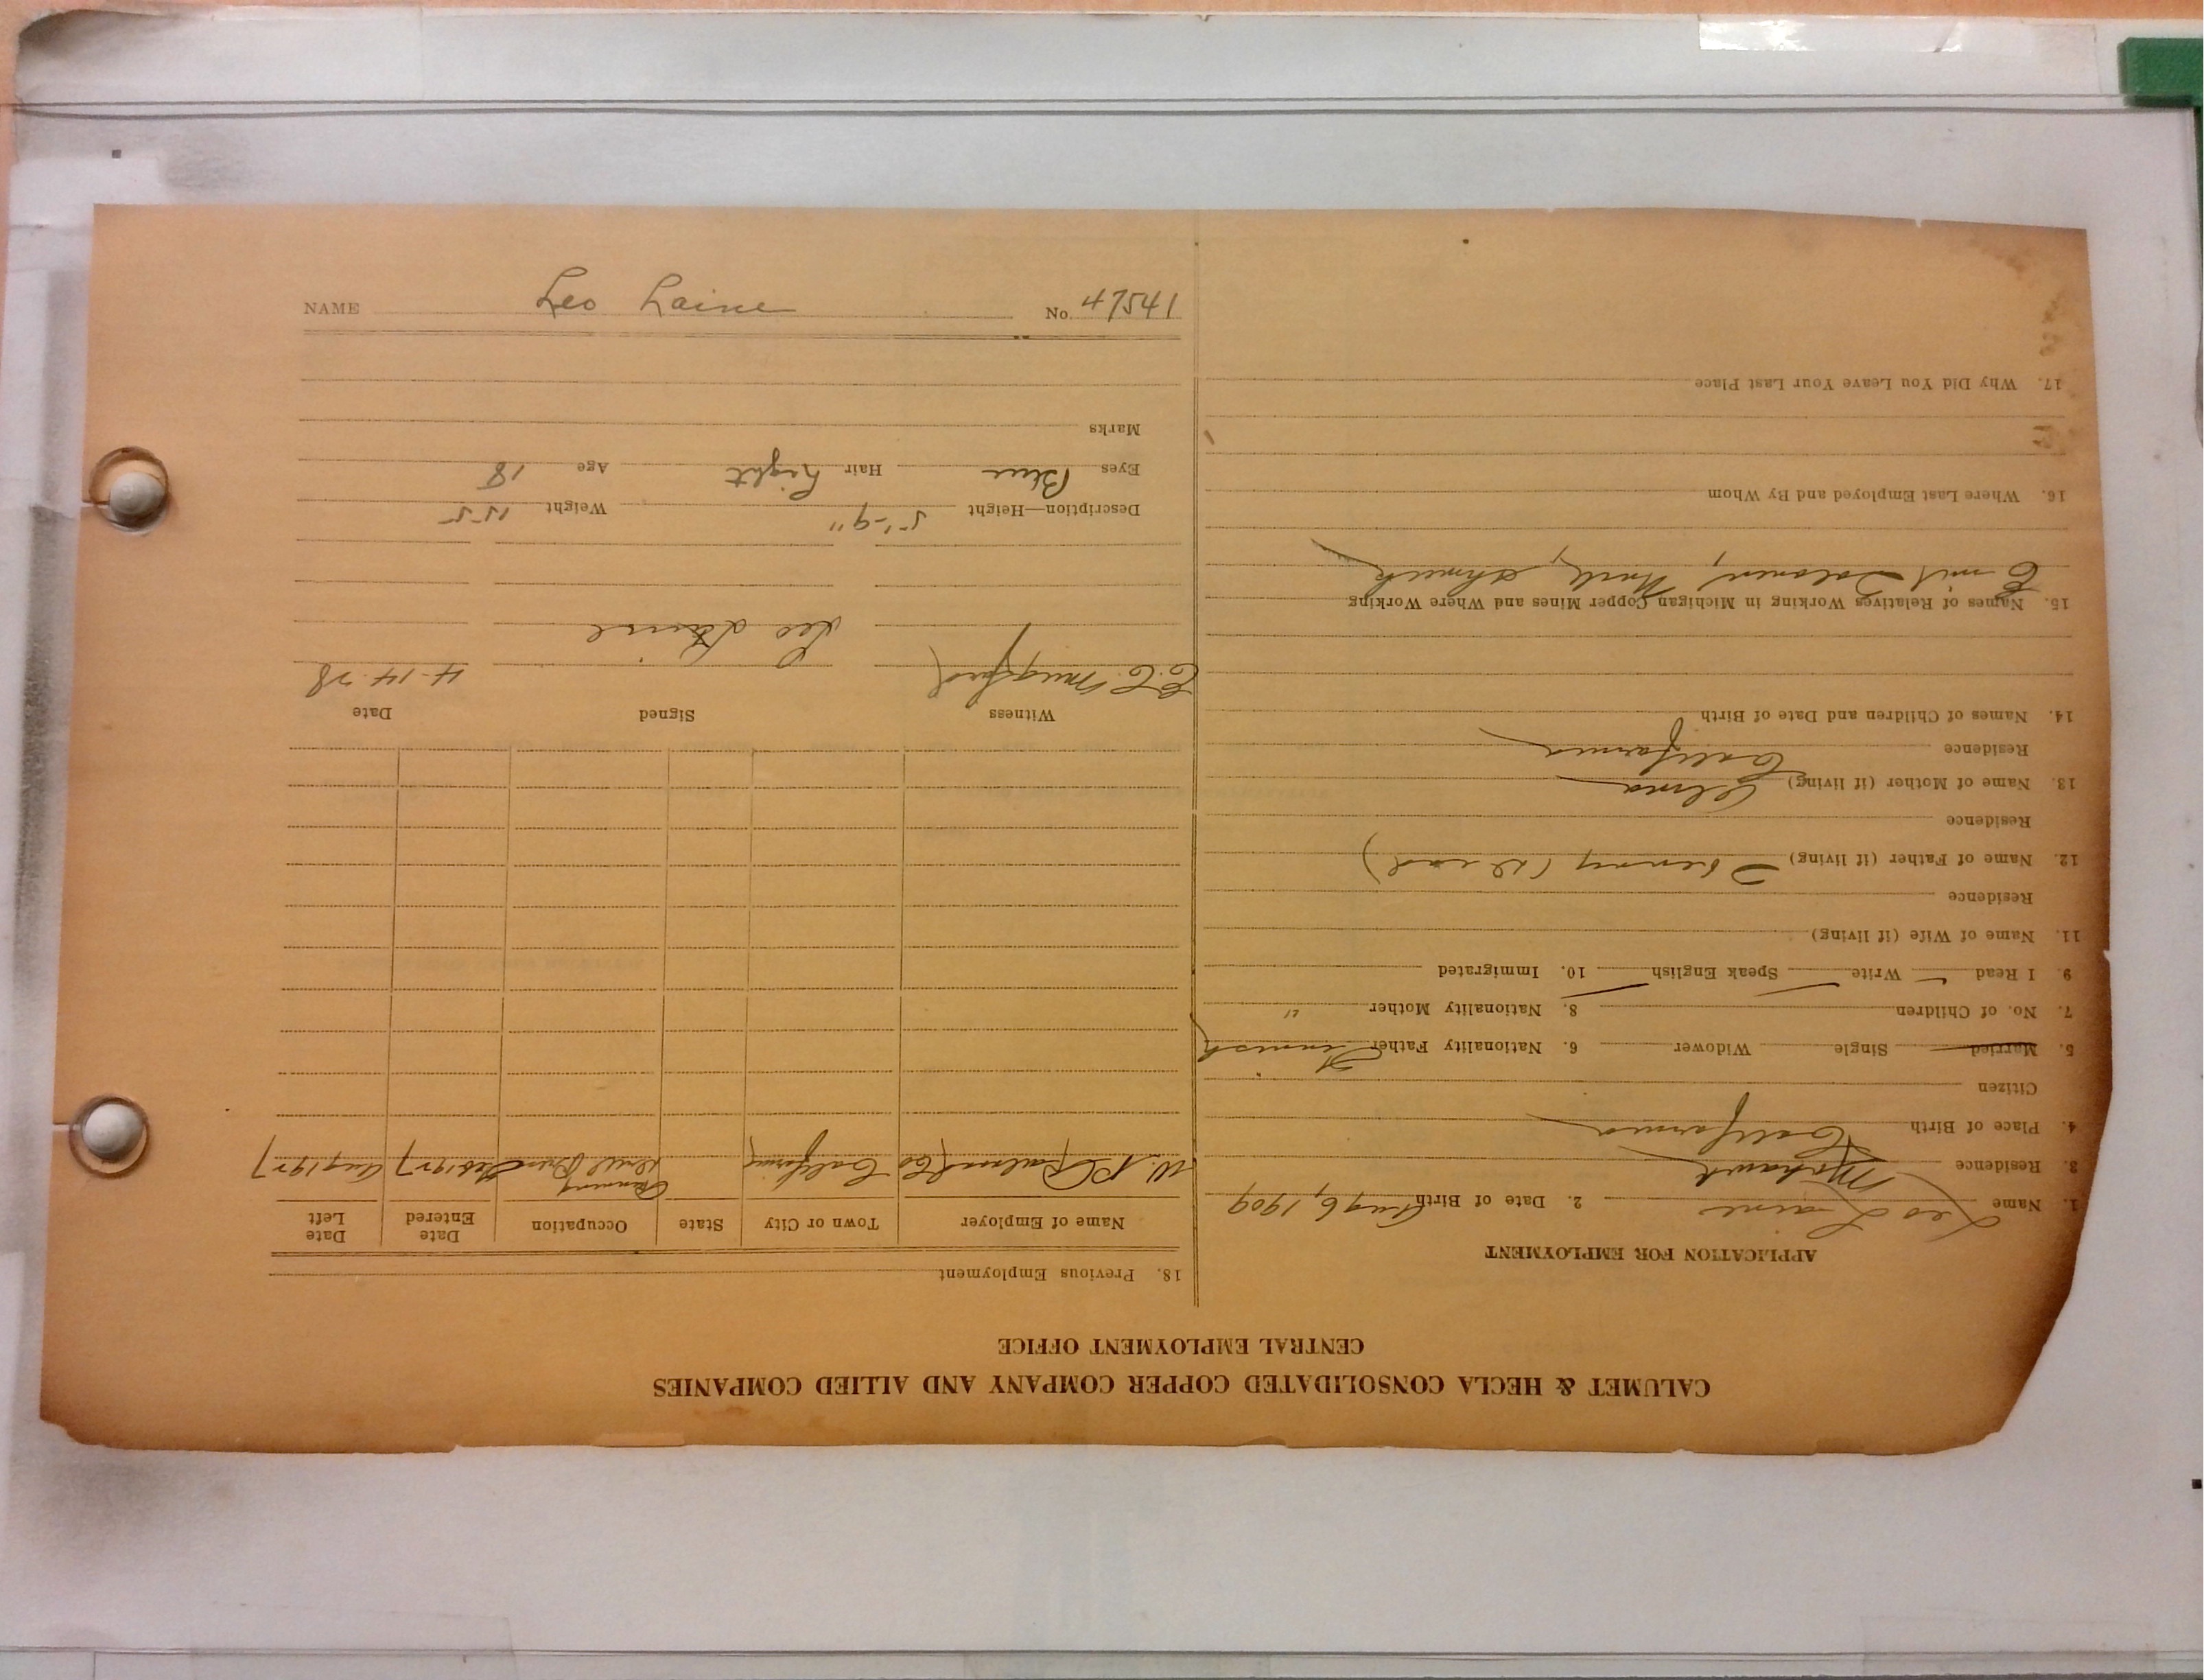 CALUMET & HECLA CONSOLIDATED COPPER COMPANY AND ALLIED COMPANIES
CENTRAL EMPLOYMENT OFFICE
APPLICATION FOR EMPLOYMENT
1. Name Leo Laine 2. Date of Birth Aug 6, 1909
3. Residence Mohawk
4. Place of Birth California
Citizen
5. Married Single Widower 6. Nationality Father Finnish
7. No. of Children 8. Nationality Mother "
9. I Read Write Speak English 10. Immigrated
11. Name of Wife (if living)
Residence
12. Name of Father (if living) Henry (Dead)
Residence
13. Name of Mother (if living)
Residence California
14. Names of Children and Date of Birth
15. Names of Relatives Working in Michigan Copper Mines and Where Working
Emil Ahmeek
16. Where Last Employed and By Whom
17. Why Did You Leave Your Last Place
18. Previous Employment
Name of Employer Town or City State Occupation Date Entered Date Left
W. P. Co California Running Feb 1927 Aug 1927
Witness Signed Date
E.C. 4-14-28
Leo Laine
Description—Height 5'-9" Weight 155
Eyes Blue Hair Light Age 18
Marks
NAME Leo Laine No. 47541